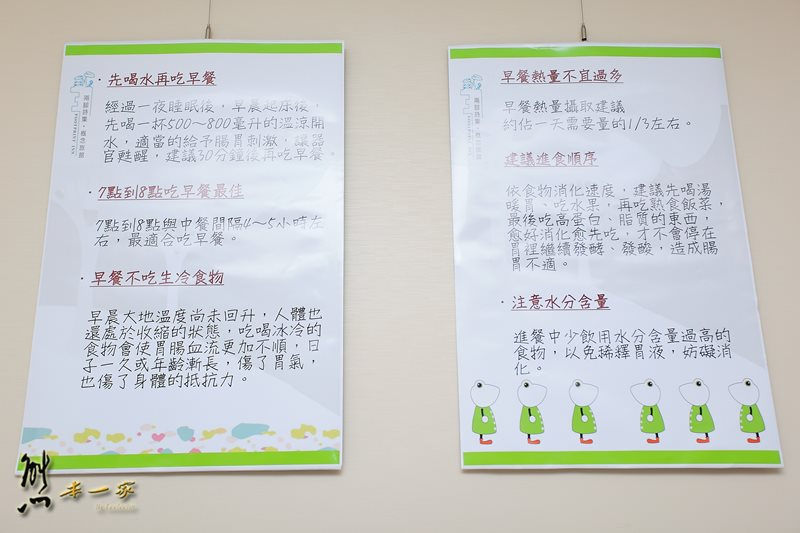 · 先喝水再吃早餐
經過一夜睡眠後，早晨起床後，
先喝一杯500～800毫升的溫涼開
水，適當的給予腸胃刺激，讓器
官甦醒，建議30分鐘後再吃早餐。
· 7點到8點吃早餐最佳
7點到8點與中餐間隔4～5小時左
右，最適合吃早餐。
· 早餐不吃生冷食物
早晨大地溫度尚未回升，人體也
還處於收縮的狀態，吃喝冰冷的
食物會使胃腸血流更加不順，日
子一久或年齡漸長，傷了胃氣，
也傷了身體的抵抗力。
早餐熱量不宜過多
早餐熱量攝取建議
約佔一天需要量的1/3左右。
建議進食順序
依食物消化速度，建議先喝湯
暖胃、吃水果，再吃熟食飯菜，
最後吃高蛋白、脂質的東西，
愈好消化愈先吃，才不會停在
胃裡繼續發酵、發酸，造成腸
胃不適。
· 注意水分含量
進餐中少飲用水分含量過高的
食物，以免稀釋胃液，妨礙消
化。
熊本一家